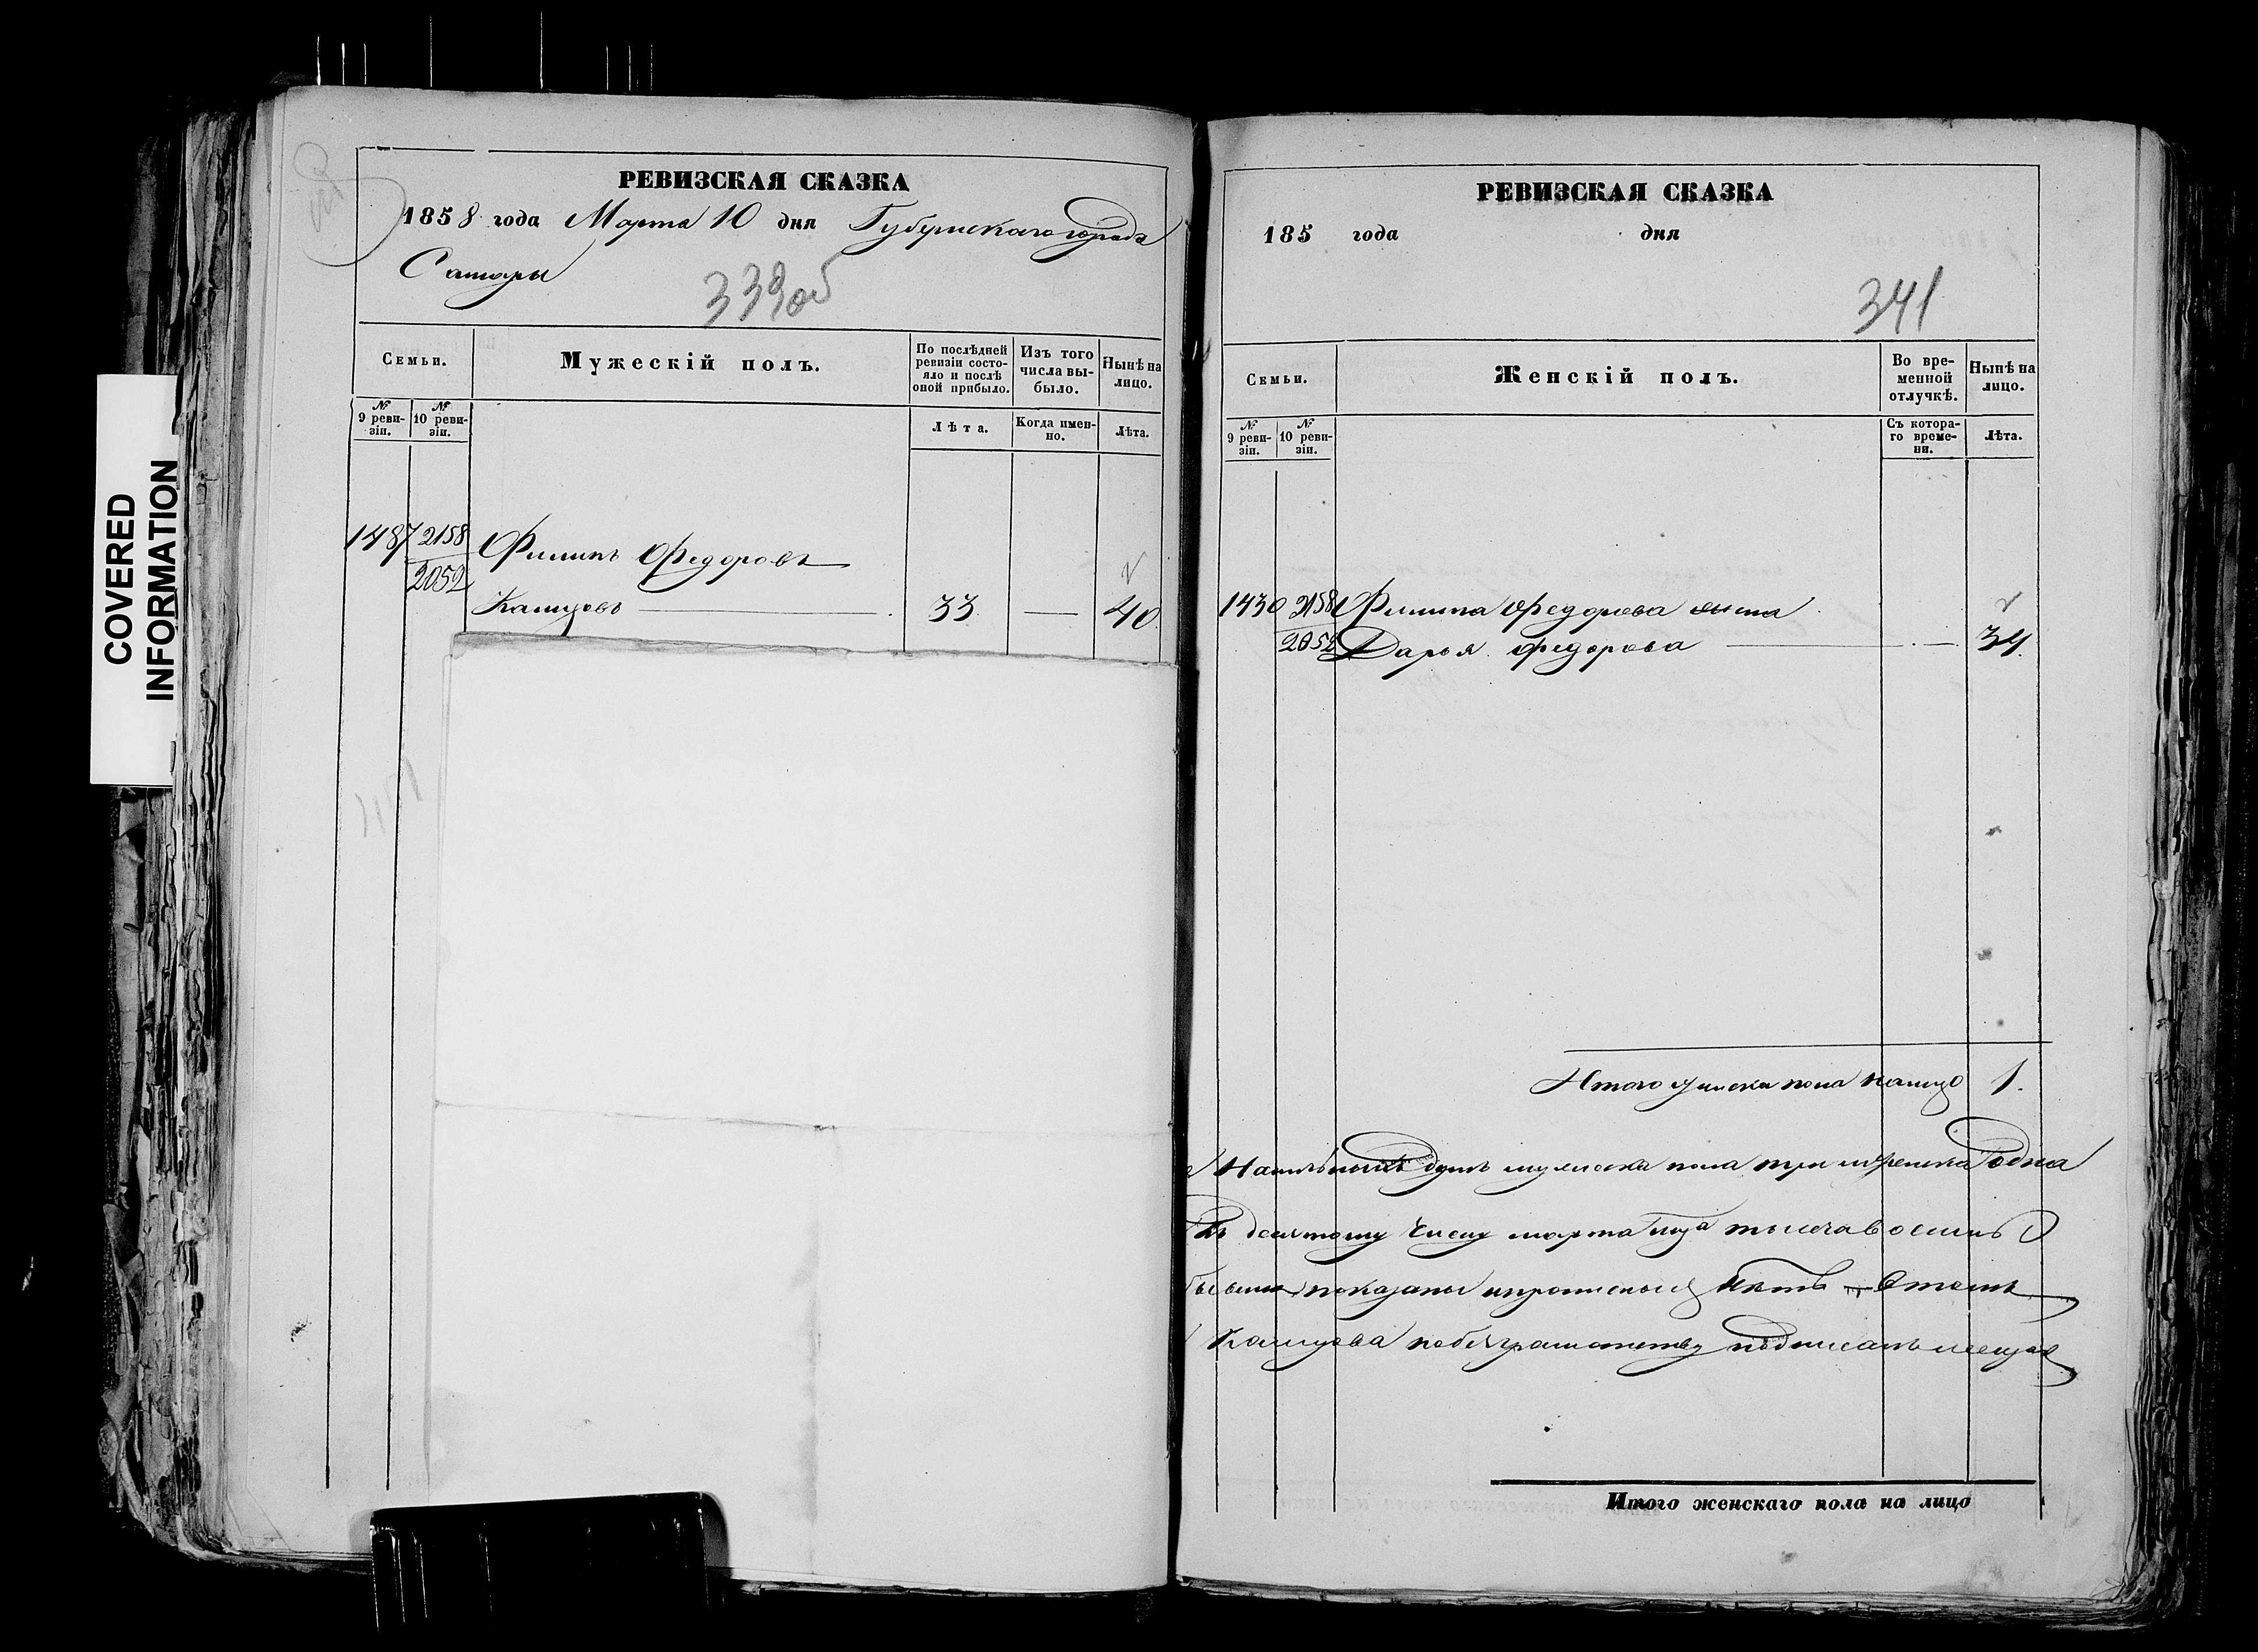 COVERED
INFORMATION
РЕВИЗСКАЯ СКАЗКА
1858 года Марта 10 дня Губернскаго города
Самары
339об
Семьи.
Мужескій полъ.
По послѣдней ревизіи состояло и послѣ оной прибыло.
Изъ того числа выбыло.
Нынѣ на лицо.
№ 9 ревизіи.
№ 10 ревизіи.
Лѣта.
Когда именно.
Лѣта.
1487 2158 Филипъ Федоровъ
2052
33 — 40
РЕВИЗСКАЯ СКАЗКА
185 года дня
341
Семьи.
Женскій полъ.
Во временной отлучкѣ.
Нынѣ на лицо.
№ 9 ревизіи.
№ 10 ревизіи.
Съ котораго времени.
Лѣта.
2158 Филипа Федорова жена
2052 Дарья Федорова — 34
Итого женска пола налицо 1.
душъ мужеска пола три женска одна
десятому числу марта тысяча восемь
показаны и прописныхъ нѣтъ
подписалъ
Итого женскаго пола на лицо